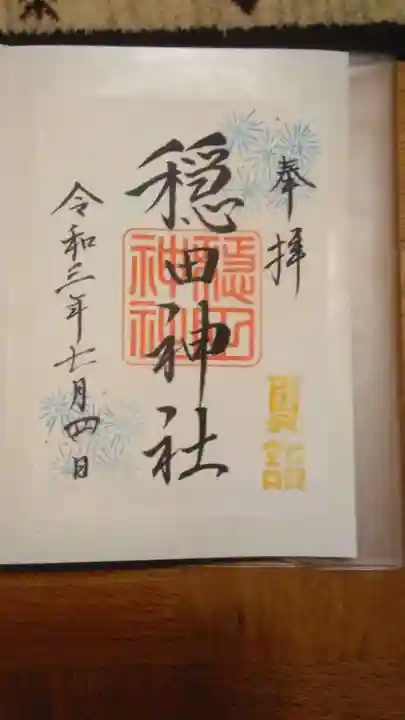 奉拝
夏詣
穏田神社
穏田神社
令和三年七月四日